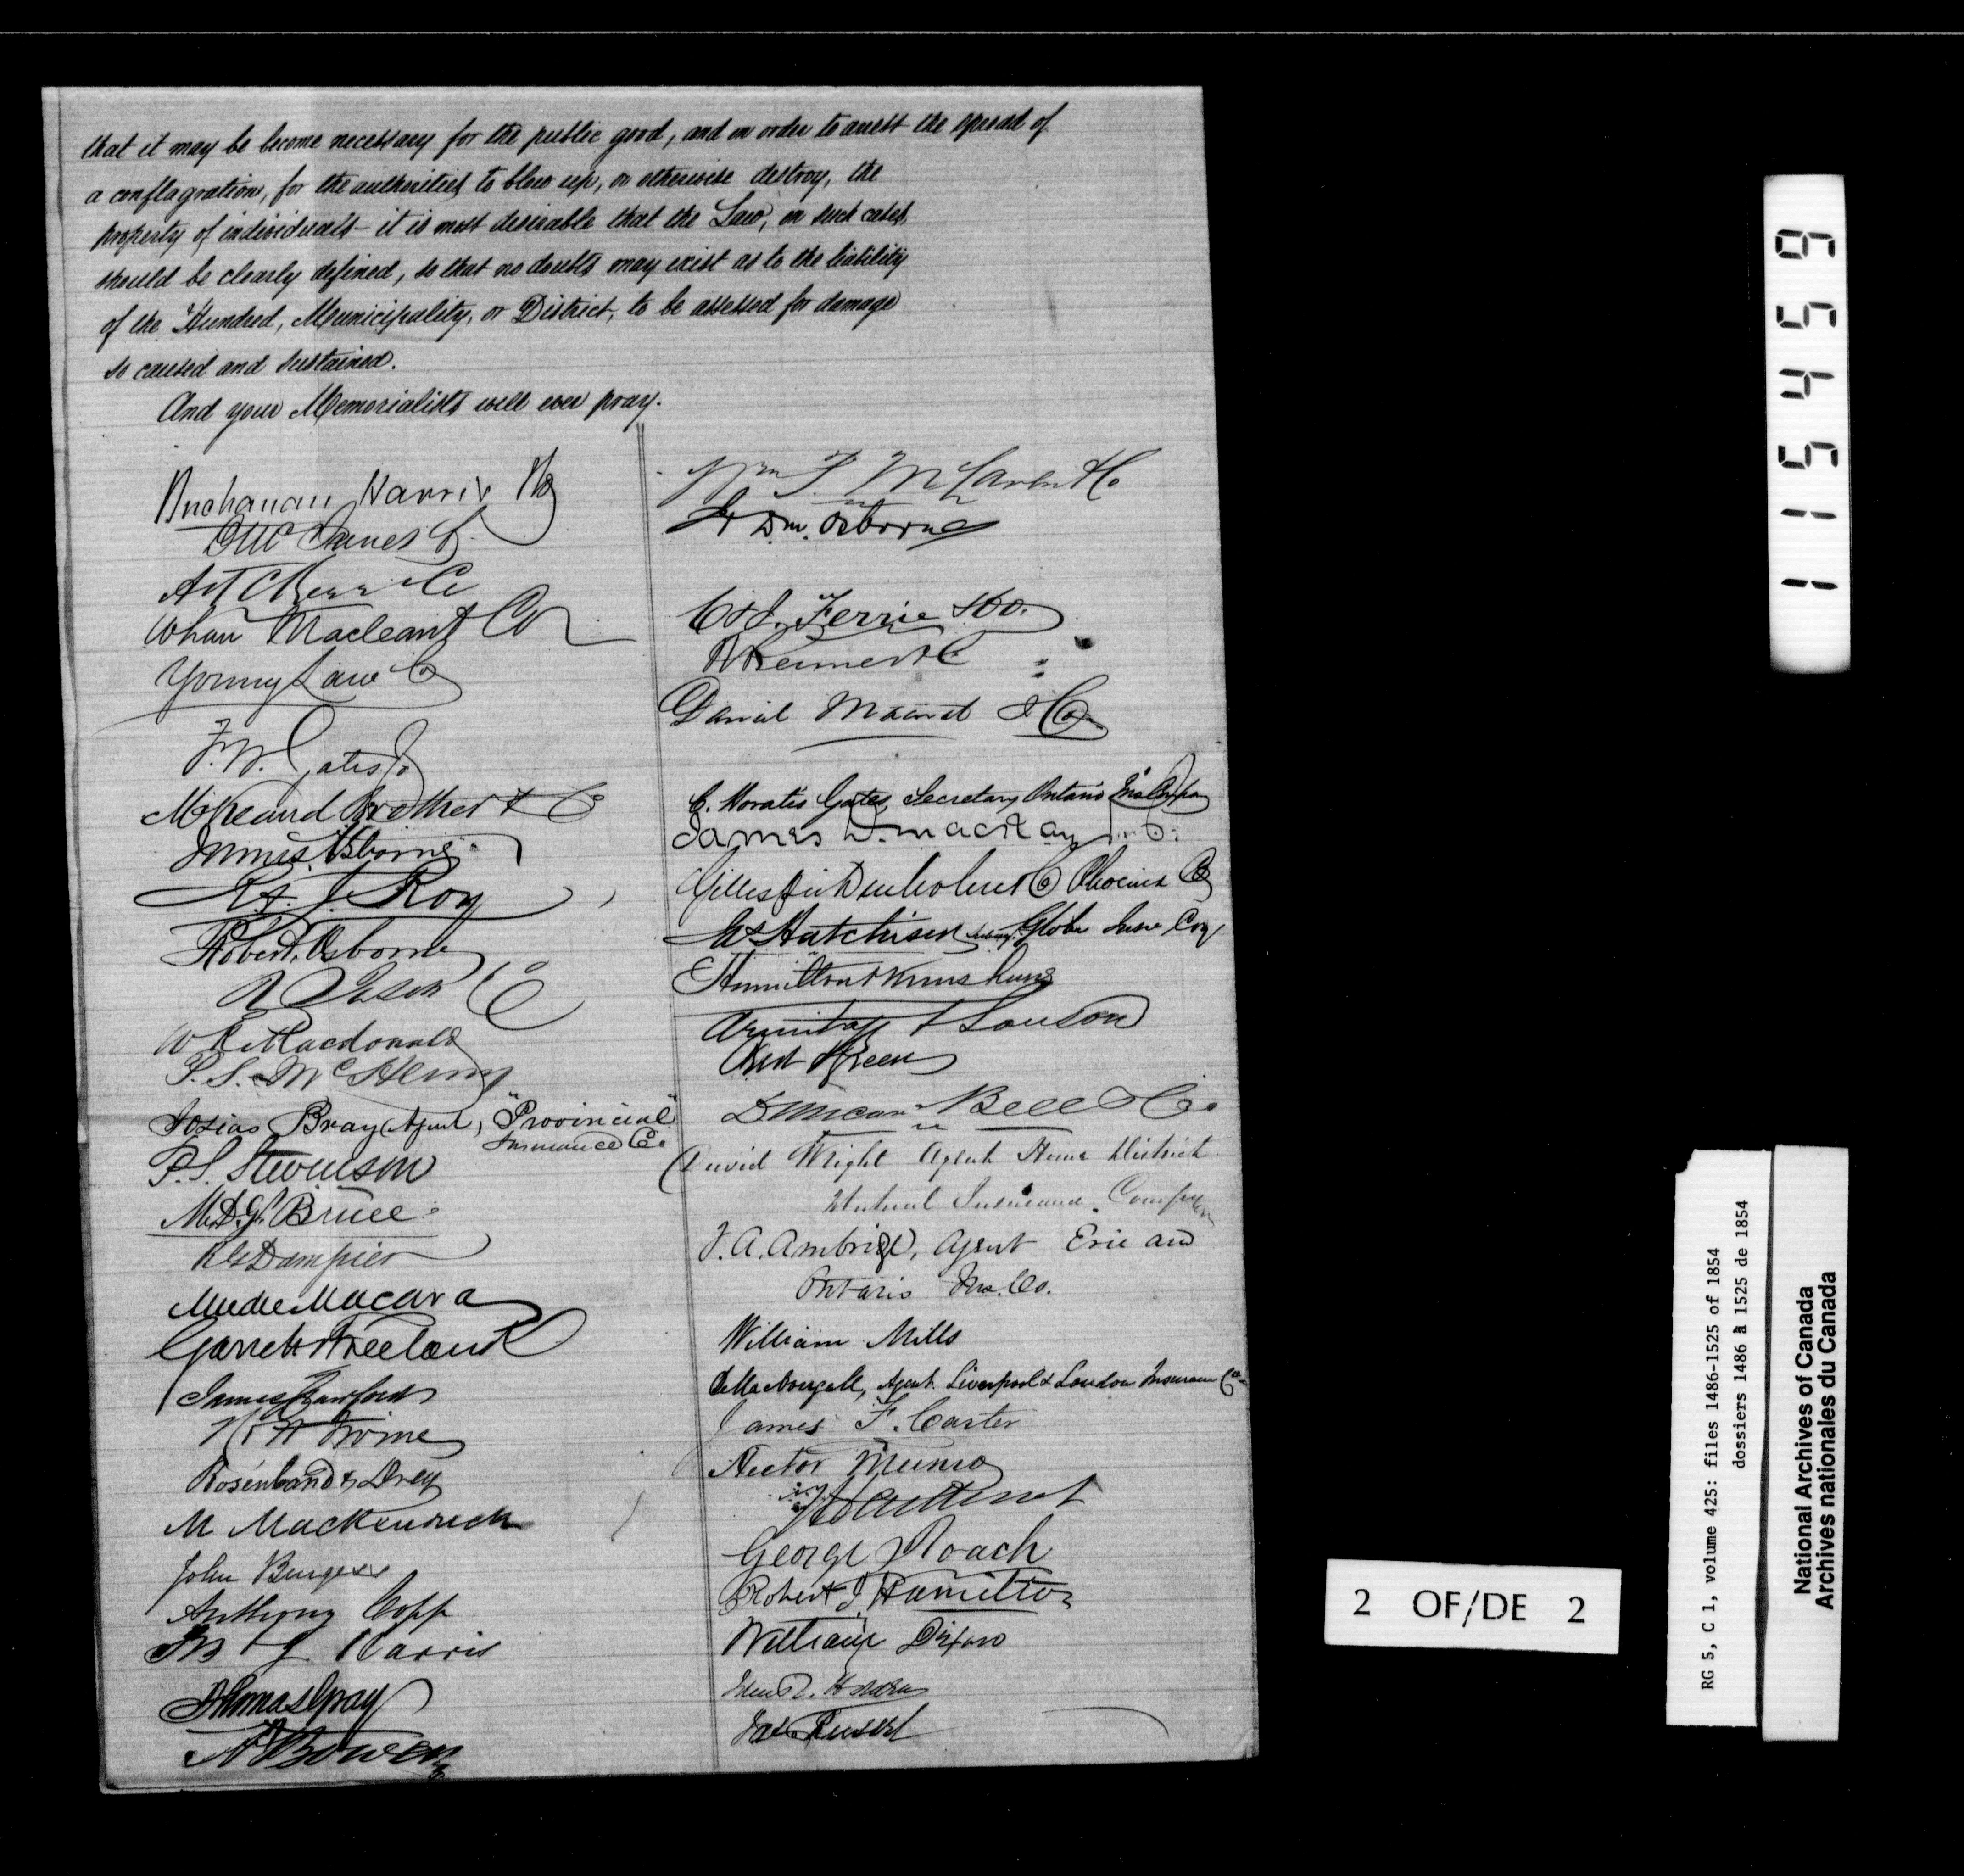 that it may be become necessary for the public good, and in order to arrest the spread of
a conflagration, for the authorities to blow up, or otherwise destroy, the
property of individuals - it is most desirable that the Law, in such cases,
should be clearly defined, so that no doubts may exist as to the liability
of the Hundred, Municipality, or District, to be assessed for damage
so caused and sustained.
And your Memorialists will ever pray.
Buchanan Harris & Co
D McInnes & Co
Kerr & Co
Whan Macleant & Co
Young Law & Co
F. W. Gates
McKeand Brother & Co
Innis Osborne
R. J. Roy
Robert Osborne
R Juson & Co
W R Macdonald
P. S. McHenry
Josias Bray Agent, "Provincial"
Insurance Co.
P. S. Stevenson
Bruce
Dampier
Macara
Garrett Freeland
James Crawford
Irvine
Rosenband &
M Mackendrick
John Burgess
Anthony Copp
Harris
Thomas Gray
Bowen
Wm P. McLaren & Co
Osborne
C & J. Ferrie & Co.
Daniel & Co.
C. Horatio Gates, Secretary Ontario Ins Company
James D. Mackay
Gillespie Phoenix Co
Hutchison Globe Insce Coy
Hamilton &
Duncan Bell & Co.
David Wright Agent Home District
Mutual Insurance Company
J. A. Ambridge, Agent Erie and
Ontario Ins. Co.
William Mills
MacDougall, Agent. Liverpool & London Insurance Co.
James F. Carter
Hector Munro
George Roach
Robert J Hamilton
William Dixon
Jas Russel
115459
2 OF/DE 2
RG 5, C 1, volume 425: files 1486-1525 of 1854
dossiers 1486 à 1525 de 1854
National Archives of Canada
Archives nationales du Canada